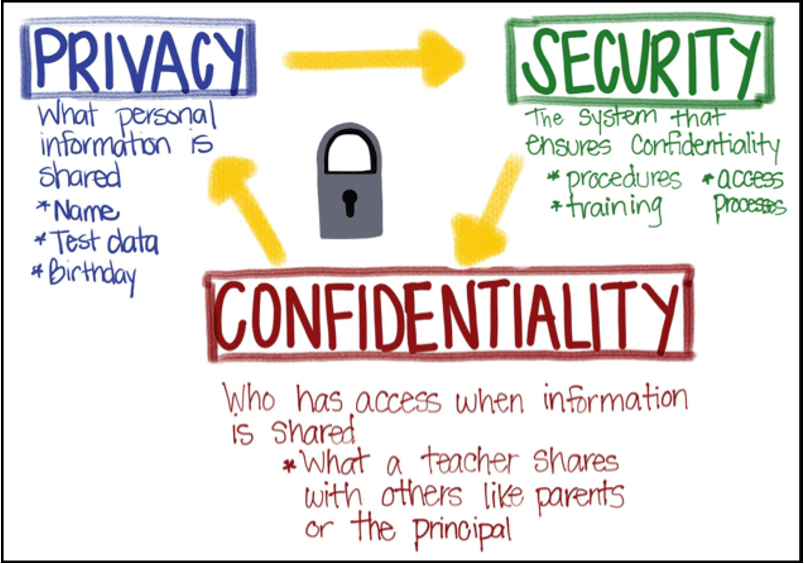 PRIVACY
What personal
information is
shared
* Name
* Test data
* Birthday
SECURITY
The system that
ensures Confidentiality
* procedures * access
* training processes
CONFIDENTIALITY
Who has access when information
is shared
* What a teacher shares
with others like parents
or the principal